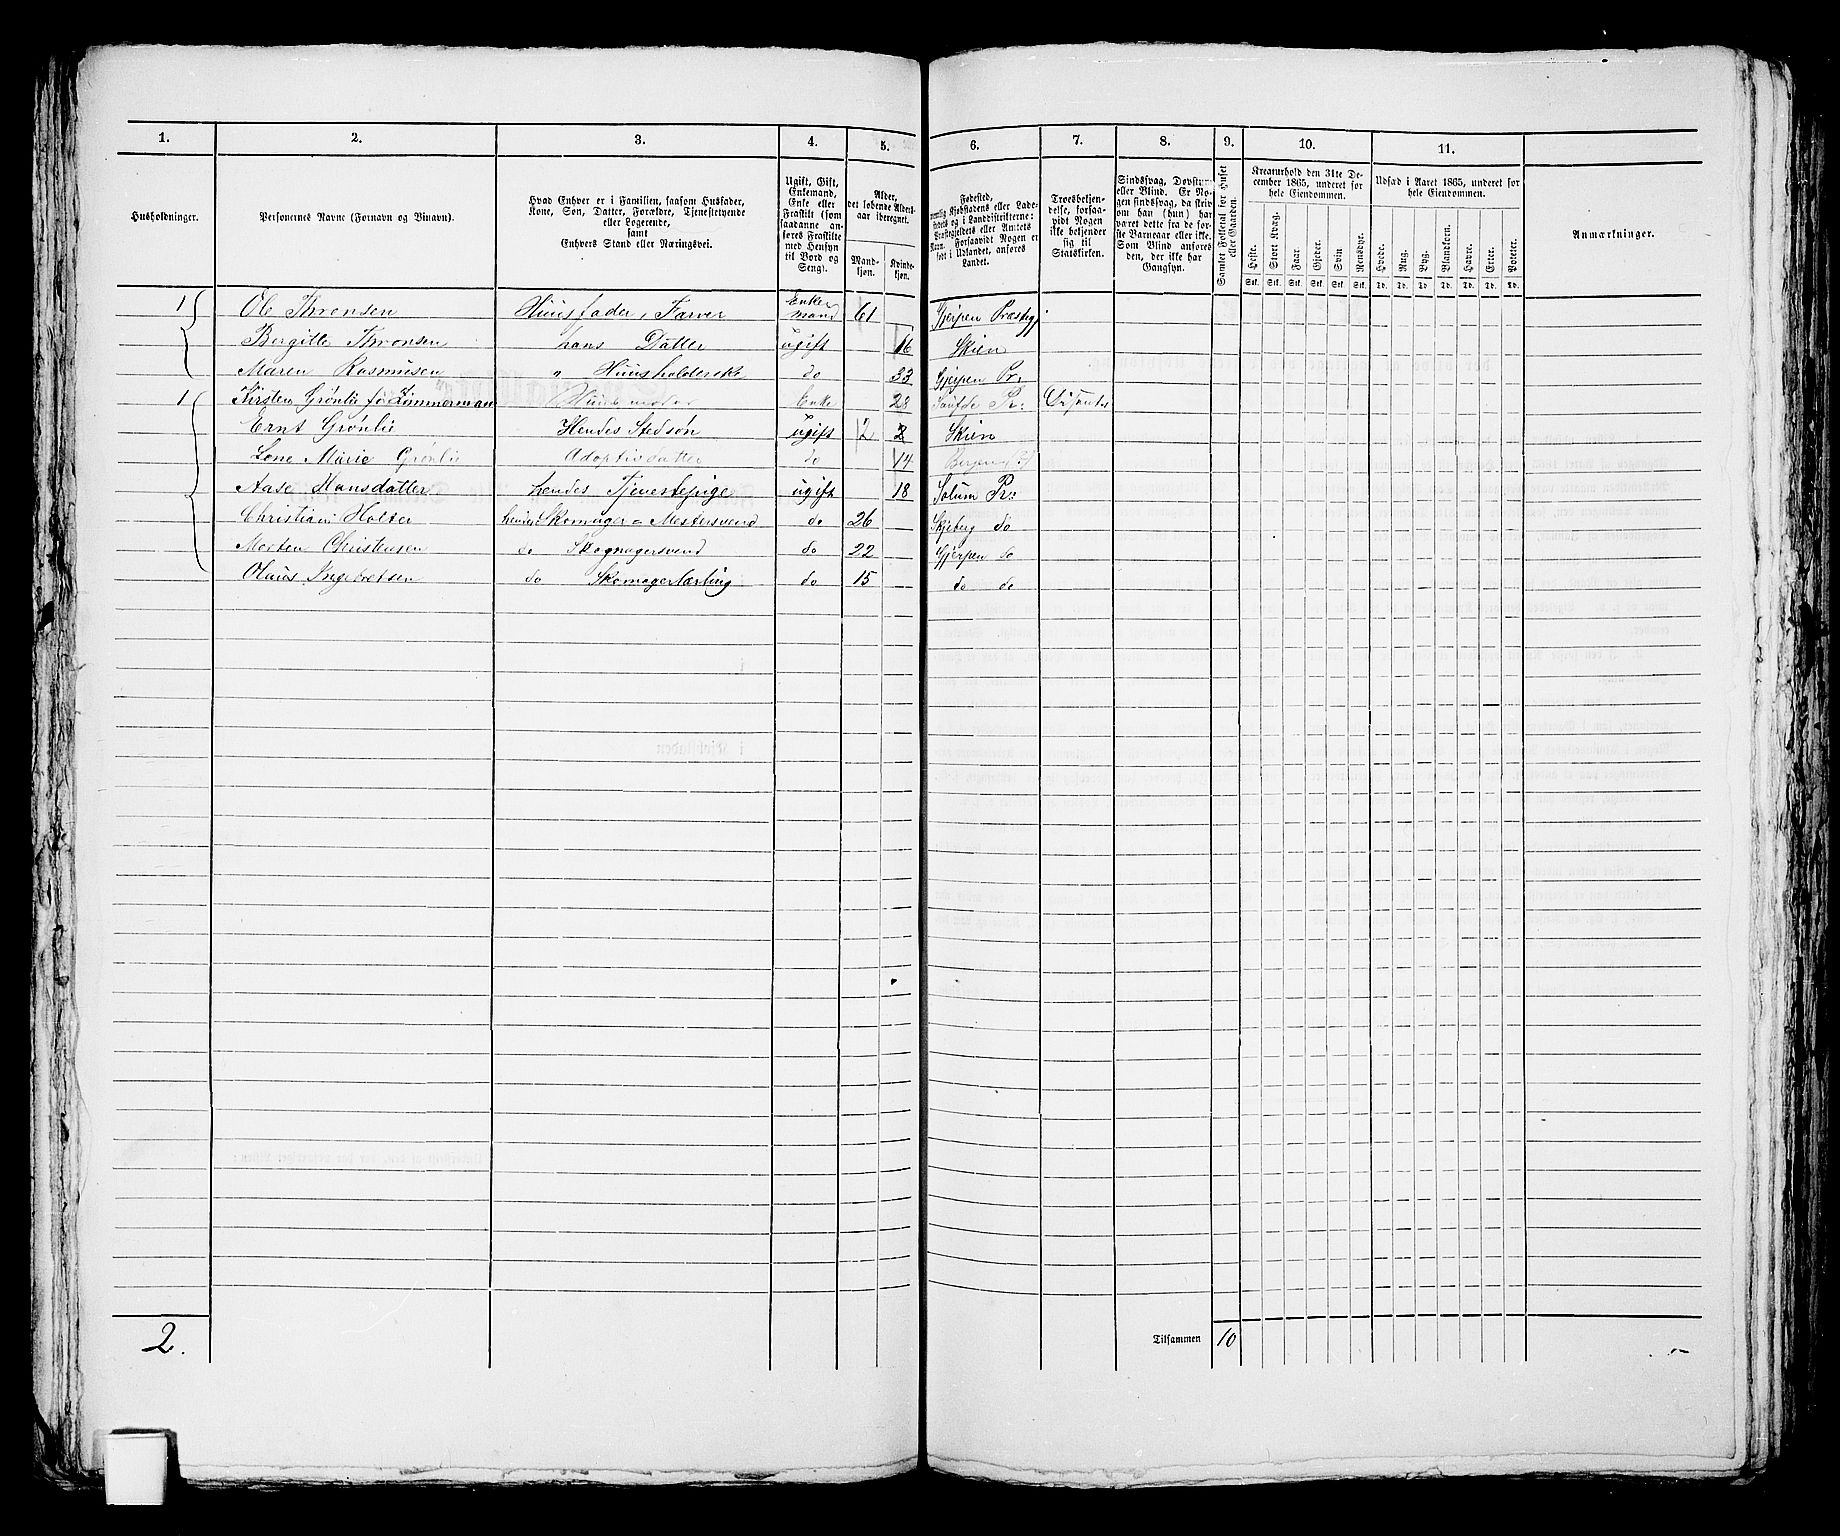 1. 2. 3. 4. 5. 6. 7. 8. 9. 10. 11.
Husholdninger.
Personernes Navne (Fornavn og Binavn).
Hvad Enhver er i Familien, saasom Husfader,
Kone, Søn, Datter, Forældre, Tjenestetyende
eller Logerende,
samt
Enhvers Stand eller Næringsvei.
Ugift, Gift,
Enkemand,
Enke eller
Fraskilt (som
saadanne an-
føres Fraskilte
med Hensyn
til Bord og
Seng).
Alder,
det løbende Alders-
aar iberegnet.
Mand-
kjøn.
Kvinde-
kjøn.
Fødested,
nemlig Kjøbstadens eller Lade-
stedets og i Landdistrikterne:
Præstegjeldets eller Amtets
Navn. Forsaavidt Nogen er
født i Udlandet, anføres
Landet.
Troesbekjen-
delse, forsaa-
vidt Nogen
ikke bekjender
sig til
Statskirken.
Sindssvag, Døvstum
eller Blind. Er No-
gen sindssvag, da skriv
om han (hun) har
været dette fra de før-
ste Barneaar eller ikke.
Som Blind anføres
den, der ikke har
Gangsyn.
Samlet Folketal for Huset
eller Gaarden.
Kreaturhold den 31te De-
cember 1865, underet for
hele Eiendommen.
Heste. Stort Kvæg. Faar. Gjeder. Svin. Rensdyr.
Stk. Stk. Stk. Stk. Stk. Stk.
Udsæd i Aaret 1865, underet for
hele Eiendommen.
Hvede. Rug. Byg. Blandkorn. Havre. Erter. Poteter.
Td. Td. Td. Td. Td. Td. Td.
Anmærkninger.
1 Ole Thronsen Huusfader, Farver Enkemand 61 Gjerpen Præstegj.
Bergitte Thronsen hans Datter ugift 16 Skien
Maren Rasmusen " Huusholderske do 33 Gjerpen Pr:
1 Kirsten Grønlie fø Tømmerman Huusmoder Enke 28 Saufde Pr: Dissenter
Ernt Grønlie Hendes Stedsøn ugift 12 2 Skien
Lene Marie Grønlie Adoptivdatter do 14 Bergen (?)
Aase Hansdatter hendes Tjenestepige ugift 18 Solum Pr:
Christian Holter hendes Skomager-Mestersvend do 26 Skjeberg do
Morten Christensen do Skomagersvend do 22 Gjerpen do
Olaus Ingebretsen do Skomagerlærling do 15 do do
2.
Tilsammen 10